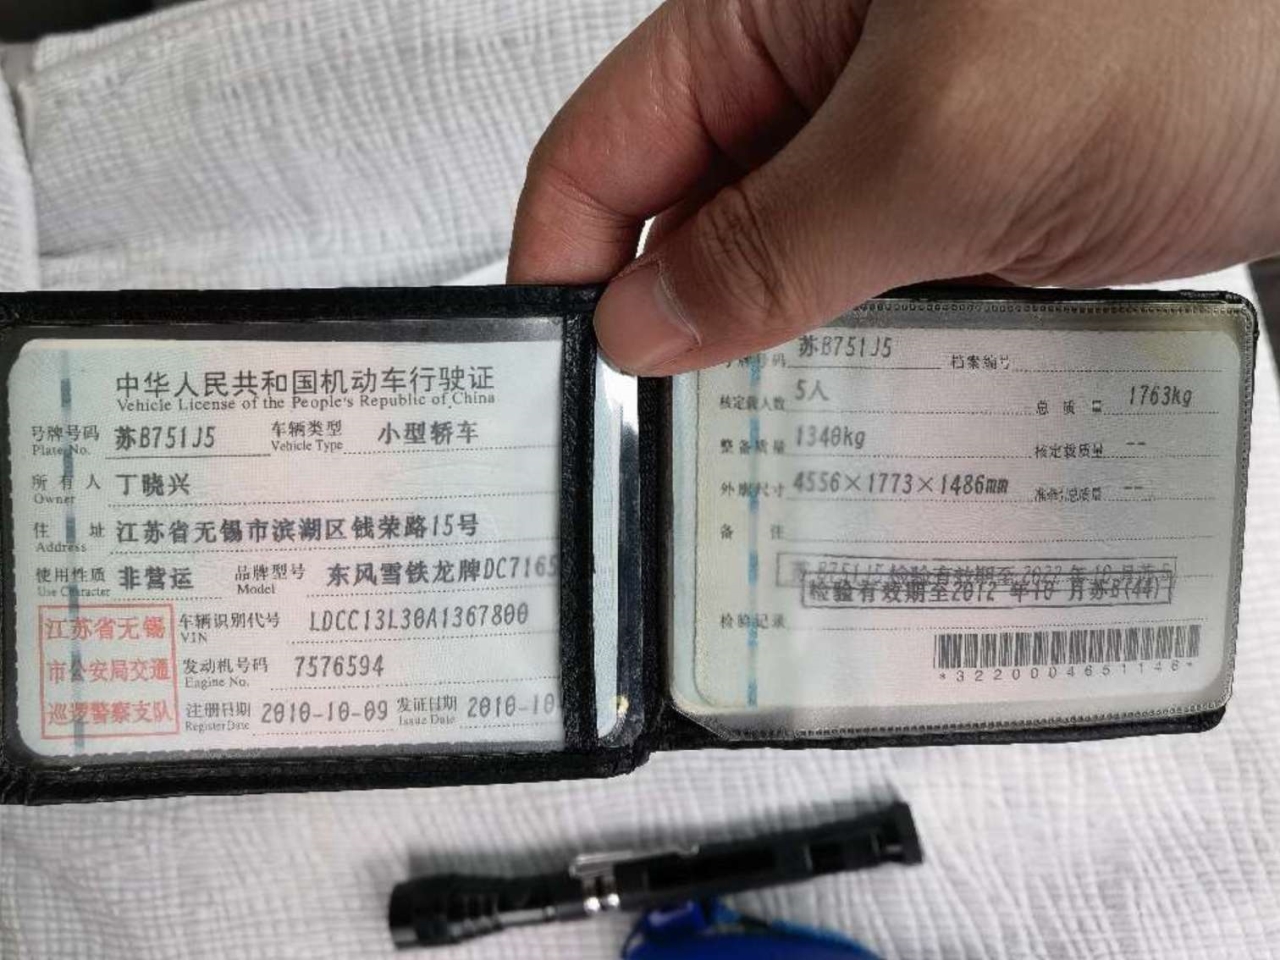 中华人民共和国机动车行驶证
Vehicle License of the People's Republic of China
号牌号码 苏B751J5 车辆类型 小型轿车
Plate No. Vehicle Type
所有人 丁晓兴
Owner
住址 江苏省无锡市滨湖区钱荣路15号
Address
使用性质 非营运 品牌型号 东风雪铁龙牌DC7165
Use Character Model
江苏省无锡
市公安局交通
巡逻警察支队
车辆识别代号 LDCC13L30A1367800
VIN
发动机号码 7576594
Engine No.
注册日期 2010-10-09 发证日期 2010-10
Register Date Issue Date
号牌号码 苏B751J5 档案编号
核定载人数 5人 总质量 1763kg
整备质量 1340kg 核定载质量 --
外廓尺寸 4556×1773×1486mm 准牵引总质量 --
备注
苏B751J5 检验有效期至2022年10月苏B
检验有效期至2012年10月苏B(44)
检验记录
*3220004651146*